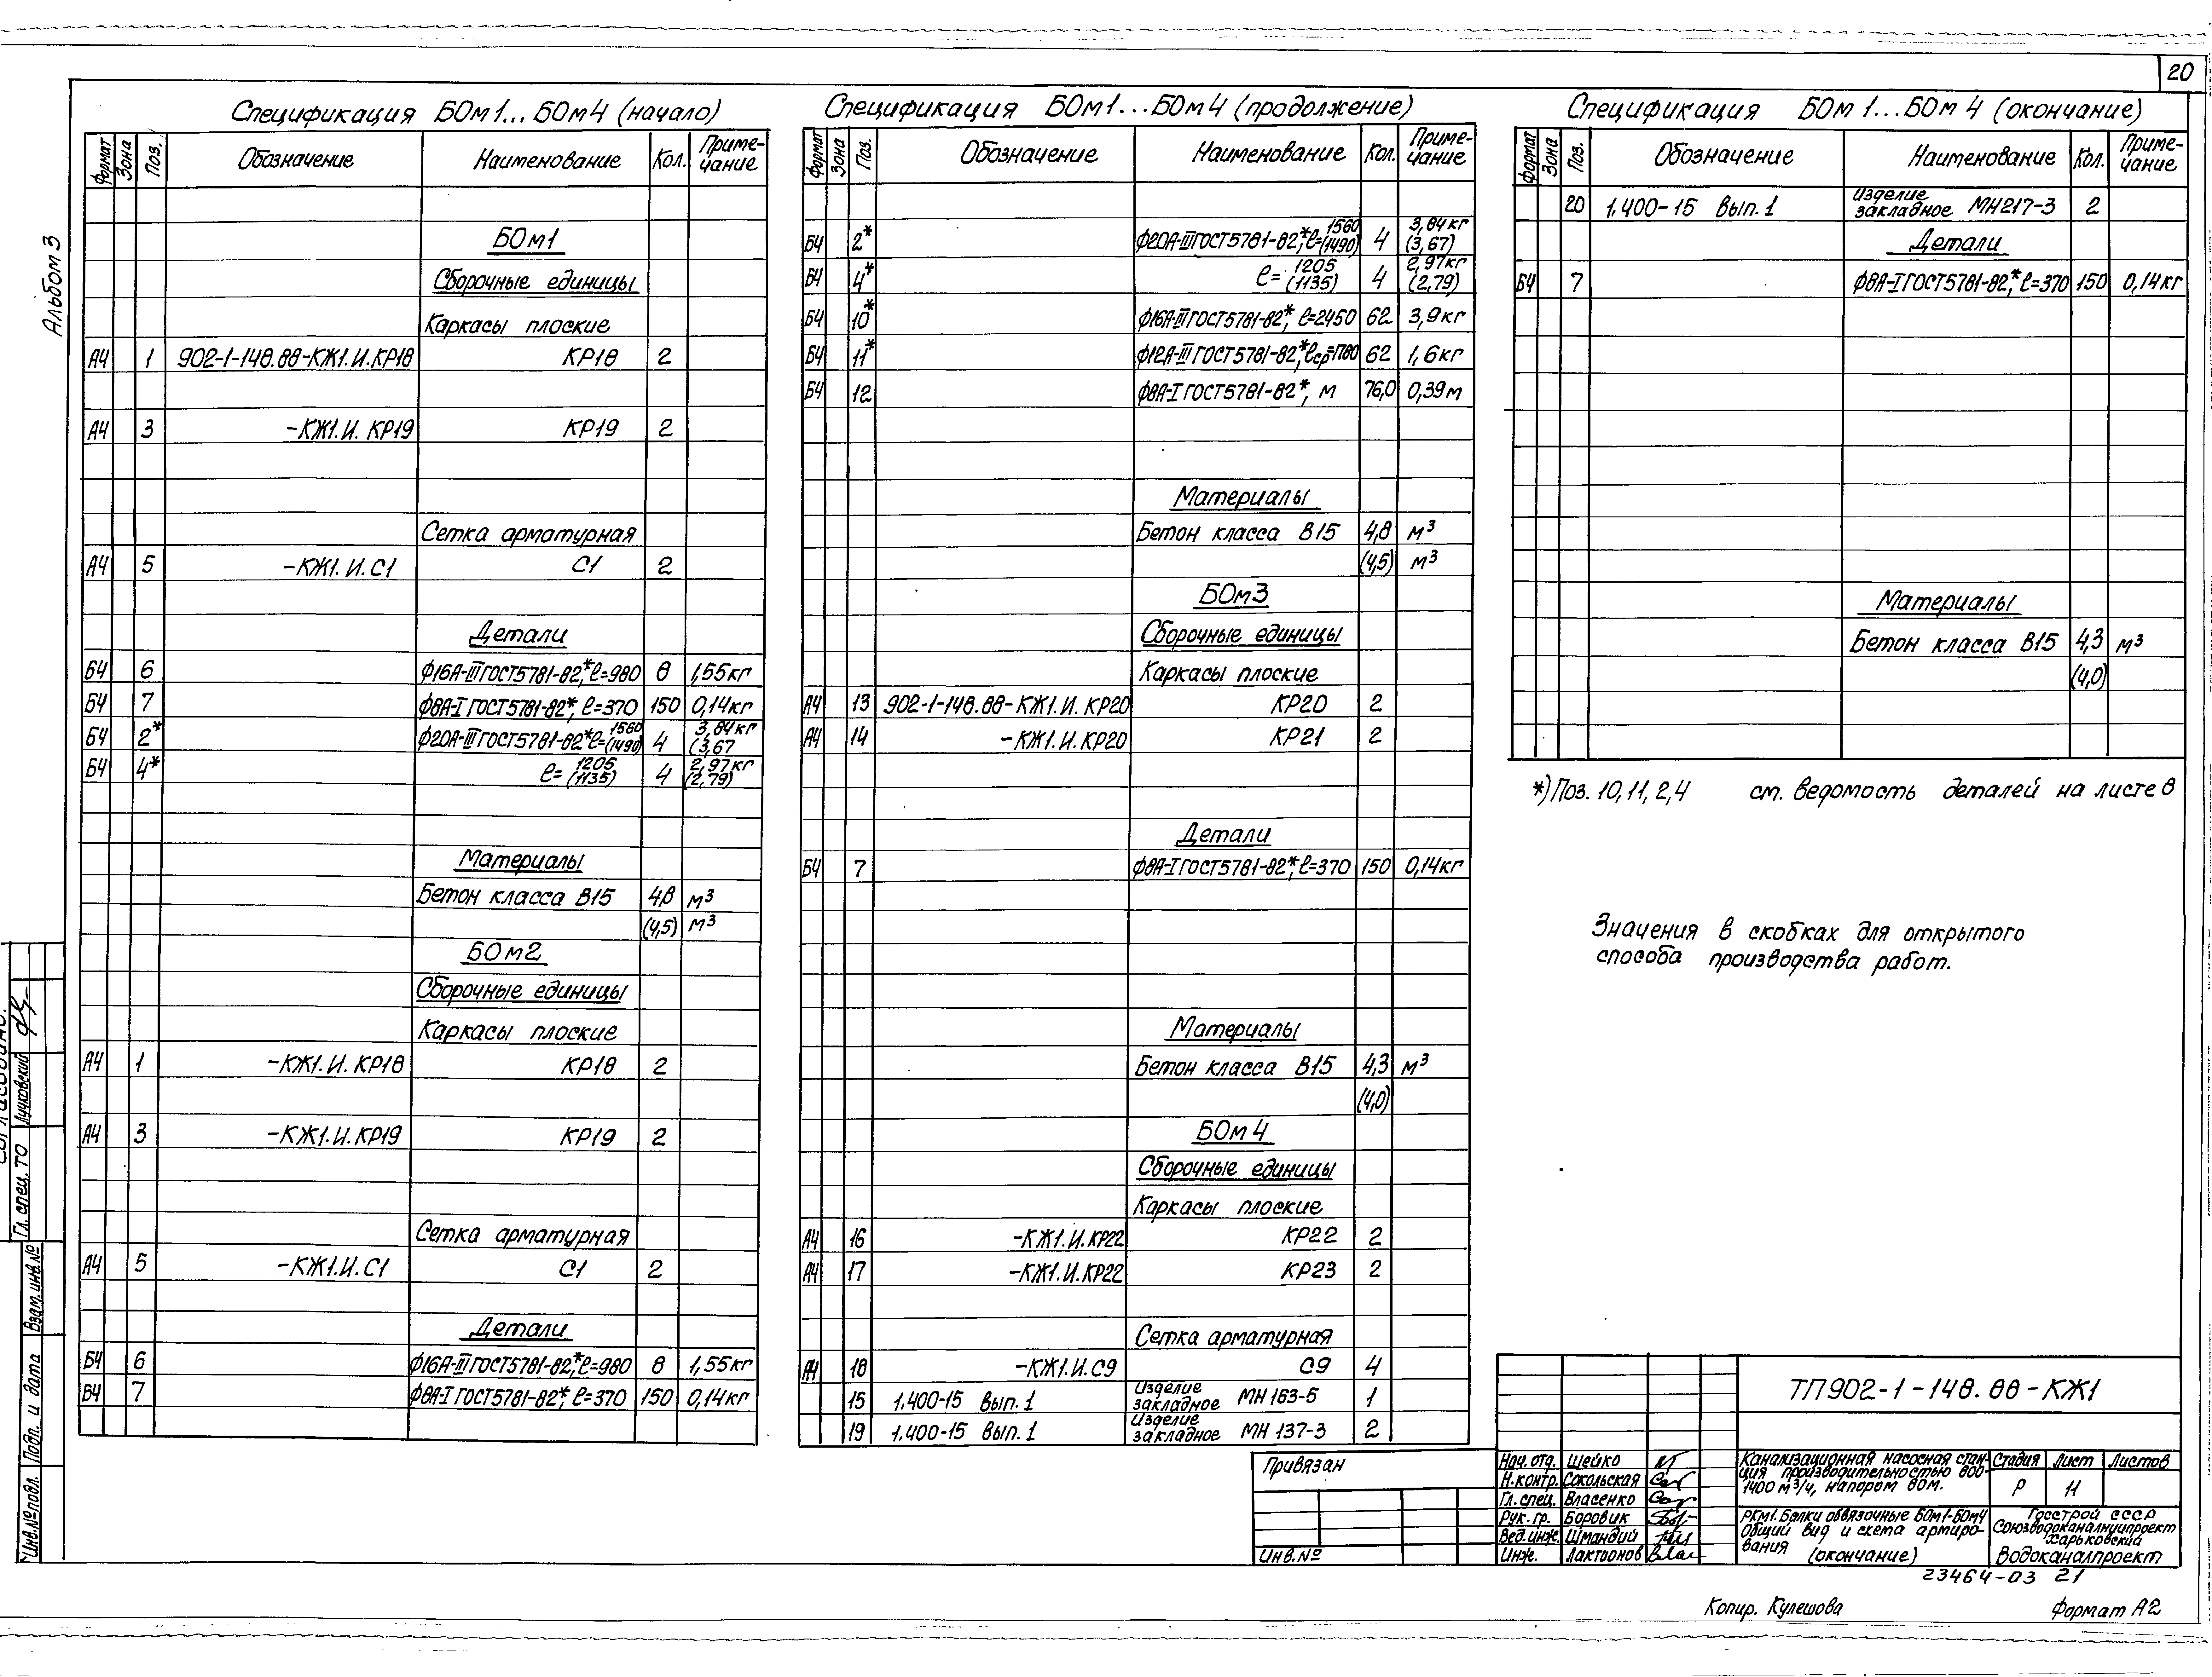 20
Альбом 3
Спецификация БОм1...БОм4 (начало)
Формат Зона Поз. Обозначение Наименование Кол. Приме-чание
БОм1
Сборочные единицы
Каркасы плоские
А4 1 902-1-148.88-КЖ1.И.КР18 КР18 2
А4 3 -КЖ1.И. КР19 КР19 2
Сетка арматурная
А4 5 -КЖ1.И.С1 С1 2
Детали
БЧ 6 ф16А-III ГОСТ5781-82*, ℓ=980 8 1,55кг
БЧ 7 ф8А-I ГОСТ5781-82*, ℓ=370 150 0,14кг
БЧ 2* ф20А-III ГОСТ5781-82* ℓ=1560 (1490) 4 3,84кг (3,67
БЧ 4* ℓ= 1205 (1135) 4 2,97кг (2,79)
Материалы
Бетон класса В15 4,8 м³
(4,5) м³
БОм2
Сборочные единицы
Каркасы плоские
А4 1 -КЖ1.И.КР18 КР18 2
А4 3 -КЖ1.И.КР19 КР19 2
Сетка арматурная
А4 5 -КЖ1.И.С1 С1 2
Детали
БЧ 6 ф16А-III ГОСТ5781-82*, ℓ=980 8 1,55кг
БЧ 7 ф8А-I ГОСТ5781-82*, ℓ=370 150 0,14кг
Спецификация БОм1...БОм4 (продолжение)
Формат Зона Поз. Обозначение Наименование Кол. Приме-чание
БЧ 2* ф20А-III ГОСТ5781-82*, ℓ=1560 (1490) 4 3,84кг (3,67)
БЧ 4* ℓ= 1205 (1135) 4 2,97кг (2,79)
БЧ 10* ф16А-III ГОСТ5781-82*, ℓ=2450 62 3,9кг
БЧ 11* ф12А-III ГОСТ5781-82*, ℓср=1780 62 1,6кг
БЧ 12 ф8А-I ГОСТ5781-82*, м 76,0 0,39м
Материалы
Бетон класса В15 4,8 м³
(4,5) м³
БОм3
Сборочные единицы
Каркасы плоские
А4 13 902-1-148.88-КЖ1.И. КР20 КР20 2
А4 14 -КЖ1.И.КР20 КР21 2
Детали
БЧ 7 ф8А-I ГОСТ5781-82*, ℓ=370 150 0,14кг
Материалы
Бетон класса В15 4,3 м³
(4,0)
БОм4
Сборочные единицы
Каркасы плоские
А4 16 -КЖ1.И.КР22 КР22 2
А4 17 -КЖ1.И.КР22 КР23 2
Сетка арматурная
А4 18 -КЖ1.И.С9 С9 4
15 1.400-15 Вып.1 Изделие закладное МН 163-5 1
19 1.400-15 Вып.1 Изделие закладное МН 137-3 2
Спецификация БОм 1...БОм 4 (окончание)
Формат Зона Поз. Обозначение Наименование Кол. Приме-чание
20 1.400-15 Вып.1 Изделие закладное МН217-3 2
Детали
БЧ 7 ф8А-I ГОСТ5781-82*, ℓ=370 150 0,14кг
Материалы
Бетон класса В15 4,3 м³
(4,0)
*) Поз. 10, 11, 2, 4 см. ведомость деталей на листе 8
Значения в скобках для открытого
способа производства работ.
Гл. спец. ТО Лучковский
Взам. инв.№
Подп. и дата
Инв.№ подл.
Привязан
Инв.№
Нач. отд. Шейко
Н.контр. Сокольская
Гл. спец. Власенко
Рук. гр. Боровик
Вед.инж. Шмандий
Инж. Лактионов
ТП902-1-148.88-КЖ1
Канализационная насосная стан-
ция производительностью 800-
1400 м³/ч, напором 80м.
Стадия Лист Листов
Р 11
РКм1. Балки обвязочные БОм1-БОм4
Общий вид и схема армиро-
вания (окончание)
Госстрой СССР
Союзводоканалниипроект
Харьковский
Водоканалпроект
23464-03 21
Копир. Кулешова
Формат А2